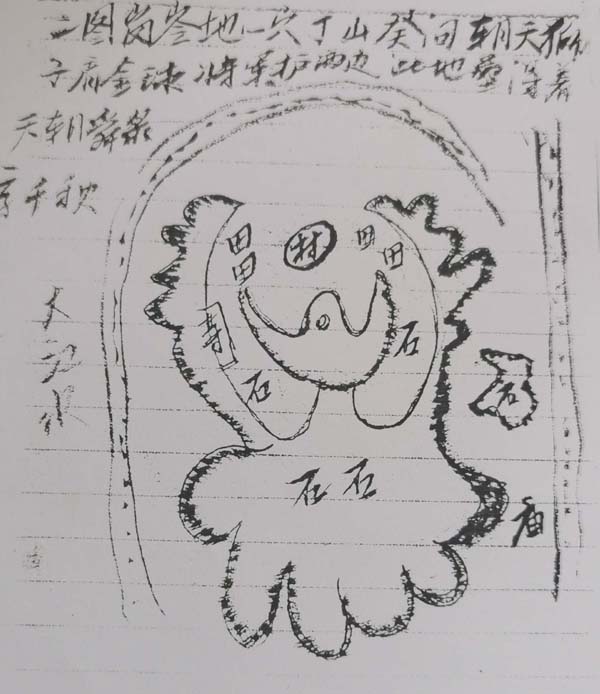 二图岗地一穴丁山癸向朝天狮
子金球将军护两边 此地得着
天朝爵禄
千秋
田 村 田 田
田
大江水
寺
石
石
石
石 石
庙